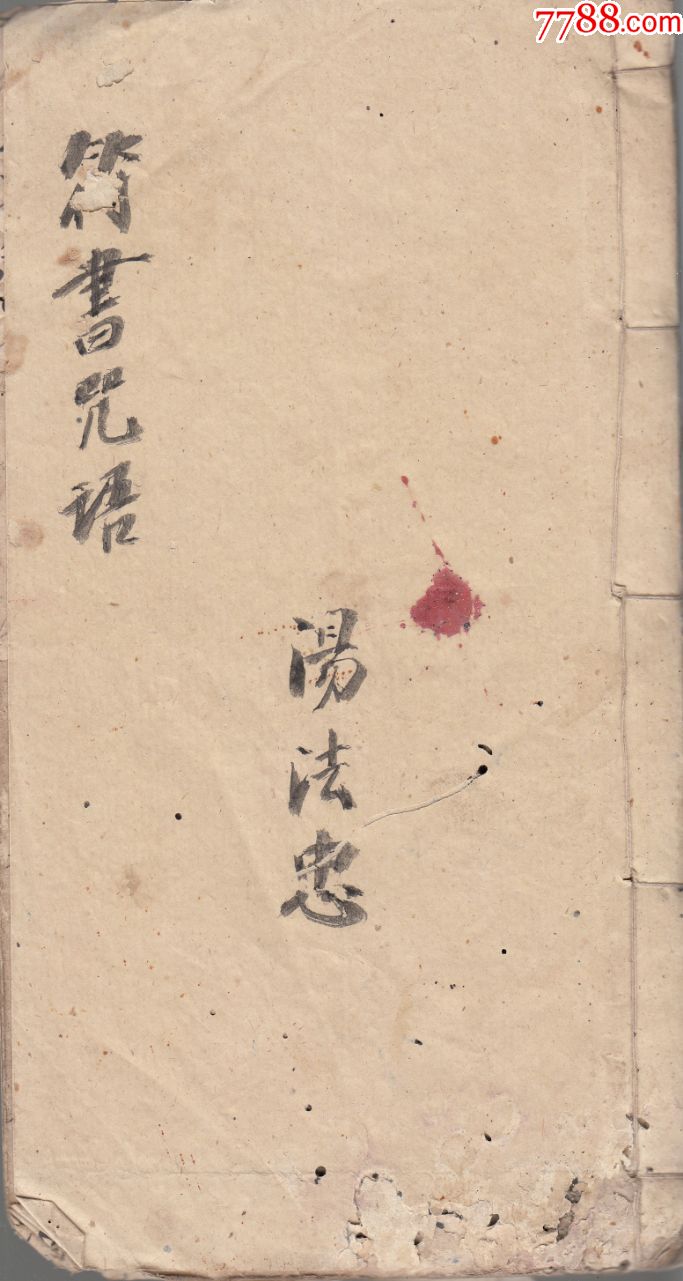 7788.com
符書咒語
湯法忠